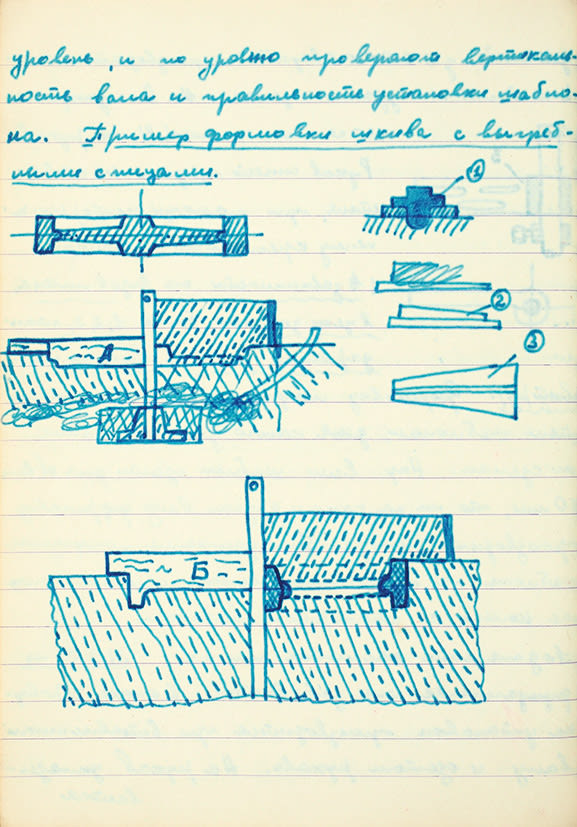 уровень, и по уровню проверяют вертикаль-
ность вала и правильность установки шабло-
на. Пример формовки шкива с выгреб-
ными спицами.
1
2
А
3
Б